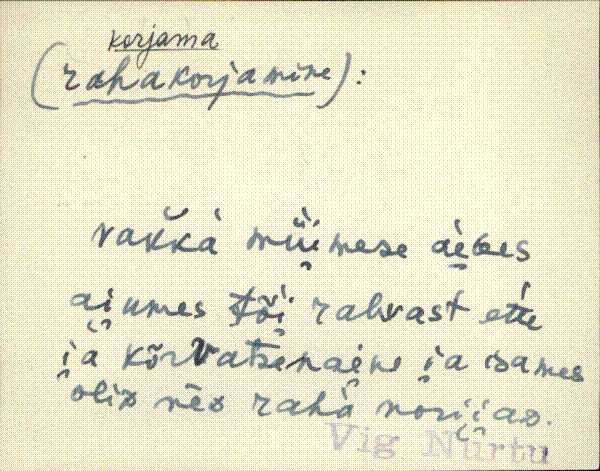 korjama
(rahakorjamine):
vakka müimese aëɢes
ainumes tõi rahvast ette
ia kõrvatsenaene ia isames
oliɒ nēɒ raha noriiaɒ.
Vig Nurtu